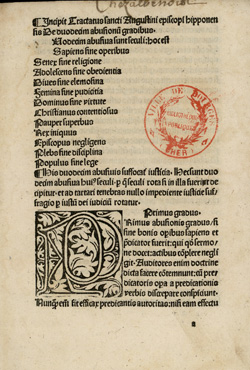 ¶Incipit Tractatus sancti Augustini episcopi hipponen
sis De duodecim abusionũ gradibus.
Uodecim abusiua sunt seculi: hoc est
Sapiens sine operibus
Senex sine religione
Adolescens sine obedientia
Diues sine elemosina
Femina sine pudicitia
Dominus sine virtute
Christianus contentiosus
Pauper superbus
Rex iniquus
Episcopus negligens
Plebs sine disciplina
Populus sine lege
VILLE DE BOURGES
CHER
¶His duodecim abusiuis suffocat iusticia. Hi sunt duo
decim abusiua huiꝰ seculi. p̃ q̃ seculi rota si in illa fuerit de
cipitur. et ad tartari tenebras nullo impediente iusticie suf
fragio p̃ iustũ dei iudiciũ rotatur.
Primus gradus.
PRimus abusionis gradus, si
sine bonis opibus sapiens et
p̃dicator fuerit: qui qđ sermo
ne docet: actibus cõplere negli
git. Auditores enim doctrine
dicta facere cõtemnunt: cũ pre
dicatoris opa a predicationis
verbis discrepare conspiciunt.
Nunqꝫ est sit efficax predicantis autoritas: nisi eam effectu
a